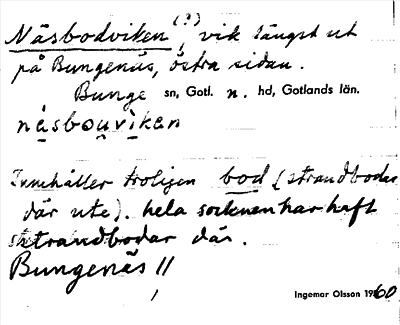 Näsbodviken (?), vik längst ut
på Bungenäs, östra sidan.
Bunge sn, Gotl. n. hd, Gotlands län.
näsbouviken
Innehåller troligen bod (strandbodar
där ute). hela socknen har haft
strandbodar där.
Bungenäs 11
Ingemar Olsson 1960